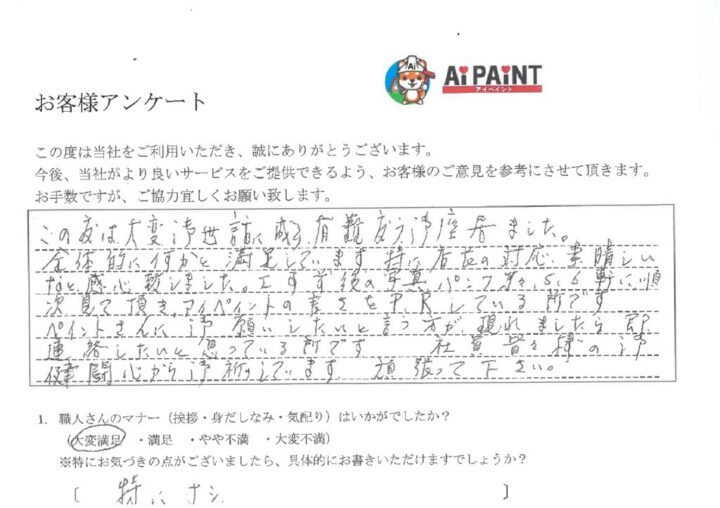 Ai PAiNT
アイペイント
お客様アンケート
この度は当社をご利用いただき、誠にありがとうございます。
今後、当社がより良いサービスをご提供できるよう、お客様のご意見を参考にさせて頂きます。
お手数ですが、ご協力宜しくお願い致します。
この度は大変御世話に成り有難度う御座居ました。
全体的に何かと満足しています 特に店長の対応、素晴しい
なと感心致しました。工事前後の写真パンフ等を5、6軒に順
次見て頂き、アイペイントの書きをP.Rしている所です
ペイントさんに御願いしたいと言う方が、現れましたら即
連絡したいと思っている所です 社員皆々様の御
健闘心から御祈りしています 頑張って下さい。
1. 職人さんのマナー（挨拶・身だしなみ・気配り）はいかがでしたか？
（大変満足 ・満足 ・やや不満 ・大変不満）
※特にお気づきの点がございましたら、具体的にお書きいただけますでしょうか？
[ 特にナシ ]